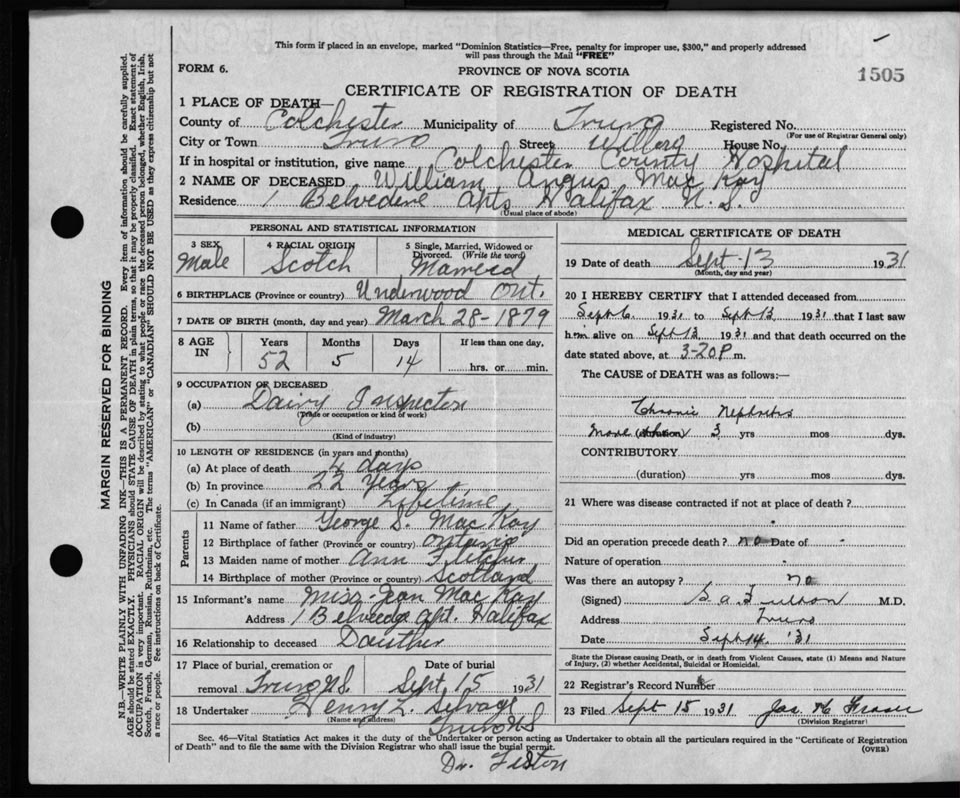 This form if placed in an envelope, marked "Dominion Statistics—Free, penalty for improper use, $300," and properly addressed
will pass through the Mail "FREE"
FORM 6.
PROVINCE OF NOVA SCOTIA
1505
CERTIFICATE OF REGISTRATION OF DEATH
1 PLACE OF DEATH—
County of Colchester Municipality of Truro Registered No.
(For use of Registrar General only)
City or Town Truro Street Willow House No.
If in hospital or institution, give name Colchester County Hospital
2 NAME OF DECEASED William Angus MacKay
Residence 1 Belvedere Apts Halifax N.S.
(Usual place of abode)
PERSONAL AND STATISTICAL INFORMATION
3 SEX Male
4 RACIAL ORIGIN Scotch
5 Single, Married, Widowed or Divorced. (Write the word) Married
6 BIRTHPLACE (Province or country) Underwood Ont.
7 DATE OF BIRTH (month, day and year) March 28-1879
8 AGE IN Years Months Days If less than one day,
52 5 14 hrs. or min.
9 OCCUPATION OF DECEASED
(a) Dairy Inspector
(Trade or occupation or kind of work)
(b)
(Kind of industry)
10 LENGTH OF RESIDENCE (in years and months)
(a) At place of death 4 days
(b) In province 22 years
(c) In Canada (if an immigrant) Lifetime
Parents
11 Name of father George D. MacKay
12 Birthplace of father (Province or country) Ontario
13 Maiden name of mother Ann
14 Birthplace of mother (Province or country) Scotland
15 Informant's name Miss Jean MacKay
Address 1 Belvedge Apt. Halifax
16 Relationship to deceased Dauther
17 Place of burial, cremation or Date of burial
removal Truro N.S. Sept 15 1931
18 Undertaker Henry L. Selvage
(Name and address) Truro N S
MEDICAL CERTIFICATE OF DEATH
19 Date of death Sept-13 1931
(Month, day and year)
20 I HEREBY CERTIFY that I attended deceased from
Sept 6 1931 to Sept 13 1931 that I last saw
him alive on Sept 13 1931 and that death occurred on the
date stated above, at 3-20P m.
The CAUSE of DEATH was as follows:—
Chronic Nephritis
More (duration) 3 yrs mos dys.
CONTRIBUTORY
(duration) yrs mos dys.
21 Where was disease contracted if not at place of death?
Did an operation precede death? no Date of -
Nature of operation
Was there an autopsy? no
(Signed) M.D.
Address Truro
Date Sept 14 '31
State the Disease causing Death, or in death from Violent Causes, state (1) Means and Nature
of Injury, (2) whether Accidental, Suicidal or Homicidal.
22 Registrar's Record Number
23 Filed Sept 15 1931 Jas. H Fraser
(Division Registrar)
Sec. 46—Vital Statistics Act makes it the duty of the Undertaker or person acting as Undertaker to obtain all the particulars required in the "Certificate of Registration
of Death" and to file the same with the Division Registrar who shall issue the burial permit.
(OVER)
Dr.
MARGIN RESERVED FOR BINDING
N.B.—WRITE PLAINLY WITH UNFADING INK—THIS IS A PERMANENT RECORD. Every item of information should be carefully supplied.
AGE should be stated EXACTLY. PHYSICIANS should STATE CAUSE OF DEATH in plain terms, so that it may be properly classified. Exact statement of
OCCUPATION is very important. RACIAL ORIGIN will be described by stating to what people or race the deceased person belonged, whether English, Irish,
Scotch, French, German, Russian, Ruthenian, etc. The terms "AMERICAN" or "CANADIAN" SHOULD NOT BE USED as they express citizenship but not
a race or people. See instructions on back of Certificate.